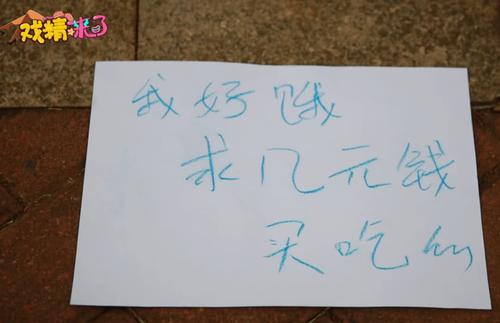 戏精来了
我好饿
求几元钱
买吃的